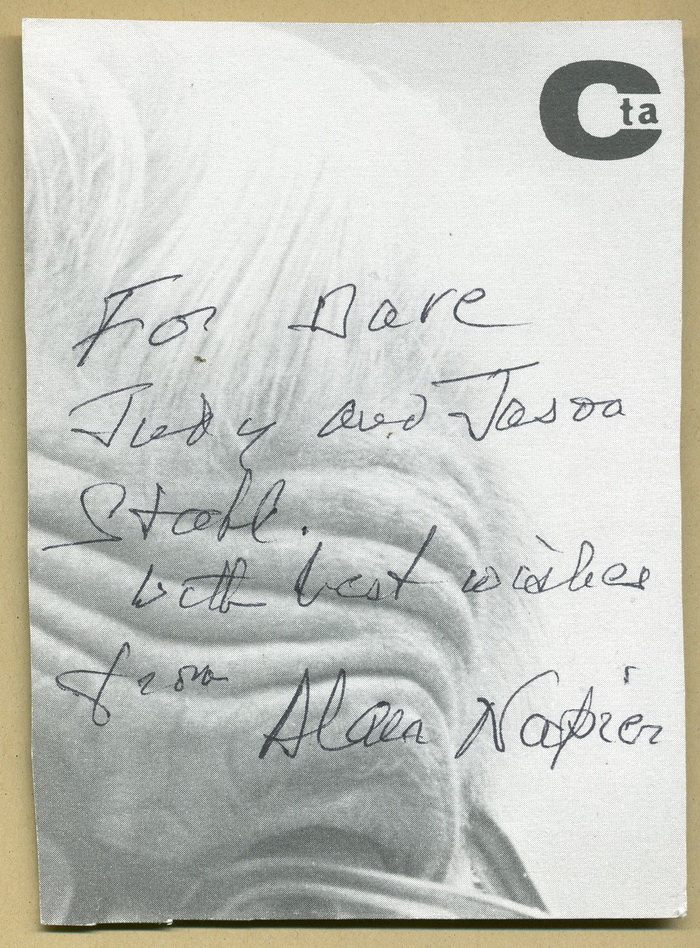 Cta
For Dave
Judy and Jason
Stahl.
with best wishes
from
Alan Napier